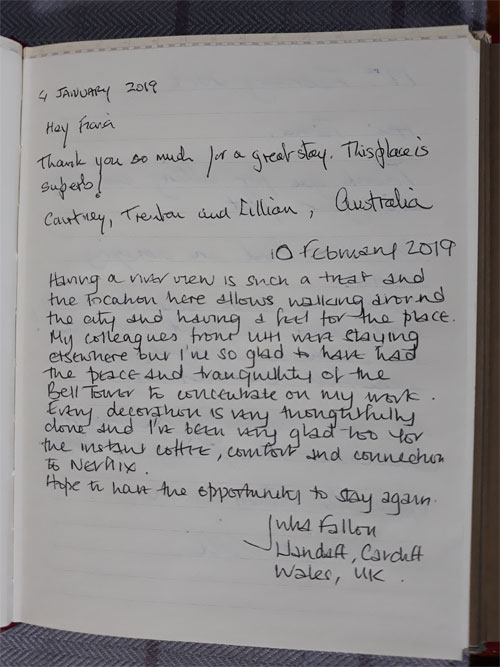 4 JANUARY 2019
Hey
Thank you so much for a great stay. This place is
superb!
Courtney, Trenton and Lillian, Australia
10 February 2019
Having a river view is such a treat and
the location here allows walking around
the city and having a feel for the place.
My colleagues from WHI were staying
elsewhere but I've so glad to have had
the peace and tranquillity of the
Bell Tower to concentrate on my work.
Every decoration is very thoughtfully
done and I've been very glad too for
the instant coffee, comfort and connection
to Netflix.
Hope to have the opportunity to stay again.
Fallon
Llandaff, Cardiff
Wales, UK.